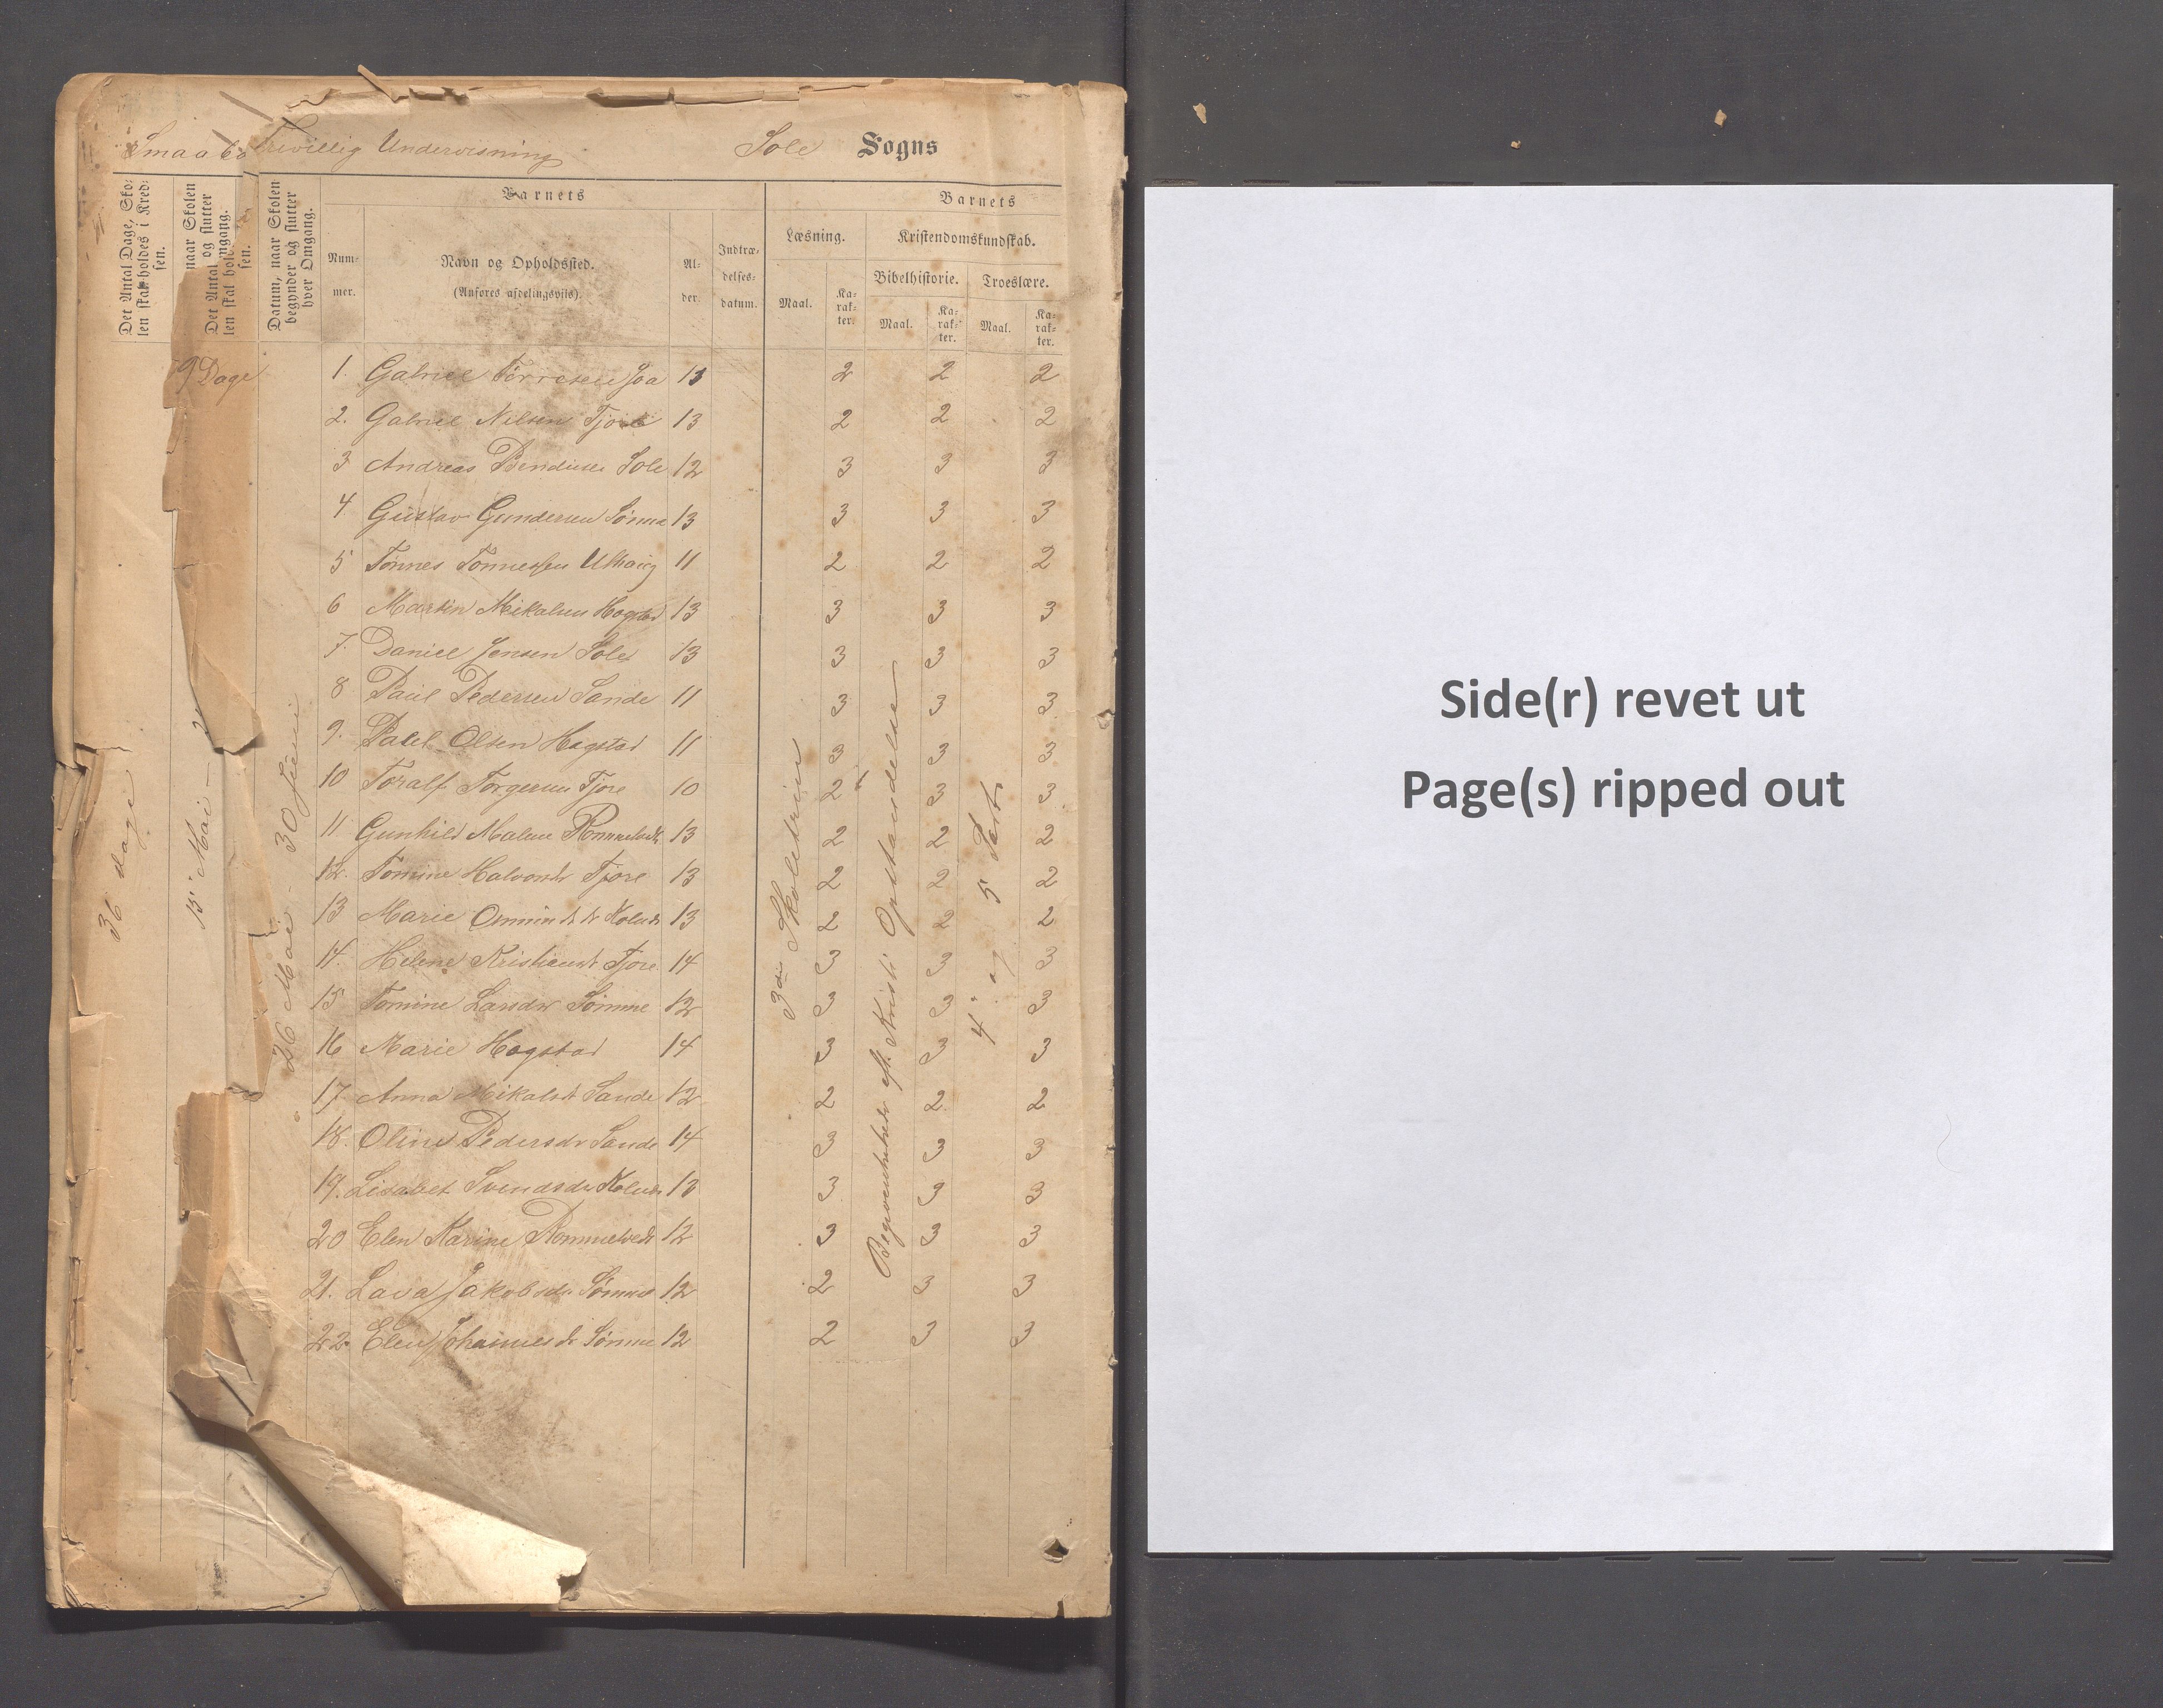 Frivillig Undervisning Sole Sogns
Det Antal Dage, Sko-
len skal holdes i Kred-
sen.
naar Skolen
og slutter
Det Antal
len skal hol
mgang.
sen.
Datum, naar Skolen
begynder og slutter
hver Omgang.
Barnets
Barnets
Num-
mer.
Navn og Opholdssted.
(Anføres afdelingsvis).
Al-
der.
Indtræ-
delses-
datum.
Læsning.
Kristendomskundskab.
Bibelhistorie.
Troeslære.
Maal.
Ka-
rak-
ter.
Maal.
Ka-
rak-
ter.
Maal.
Ka-
rak-
ter.
9 Dage
1. Gabriel Tørresen Joa 13 2 2 2
2. Gabriel Nilsen Tjore 13 2 2 2
3 Andreas Sole 12 3 3 3
4 Gustav Gundersen Sømme 13 3 3 3
5 Tønnes Tønnessen 11 2 2 2
6 Martin Mikalsen Hogstad 13 3 3 3
7. Daniel Jensen Sole 13 3 3 3
8 Paul Pedersen Sande 11 3 3 3
9. Olsen Hogstad 11 3 3 3
10 Toralf Torgersen Tjore 10 2 3 3
11 Gunhild Malene 13 2 2 2
12. Tomine Halvorsdr Tjore 13 2 2 2
13 Marie 13 2 2 2
14. Helene Kristiansdr Tjore 14 3 3 3
15 Tomine Larsdr Sømme 12 3 3 3
16 Marie Hogstad 14 3 3 3
17. Anna Mikalsd Sande 12 2 2 2
18. Oline Pedersdr Sande 14 3 3 3
19. Lisabet Svendsdr 13 3 3 3
20 Elen Karine 12 3 3 3
21. Jakobsdr Sømme 12 2 3 3
22. Elen Johannesdr Sømme 12 2 3 3
36 dage
15 Mai -
26 Mai - 30 Juni
3die Skoletrin
Begivenheder eft. Kristi Opstandelse
4. og 5 Part
Side(r) revet ut
Page(s) ripped out